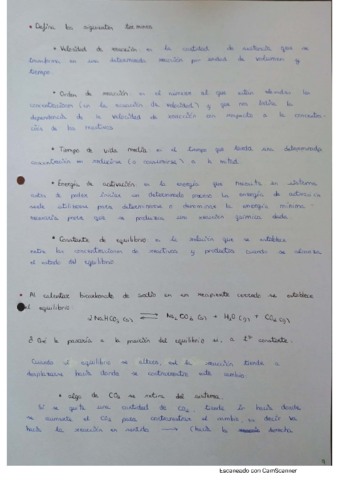 • Defina los siguientes términos
• Velocidad de reacción: es la cantidad de sustancia que se
transforma en una determinada reacción por unidad de volumen y
tiempo.
• Orden de reacción: es el número al que están elevadas las
concentraciones (en la ecuación de velocidad) y que nos indica la
dependencia de la velocidad de reacción con respecto a la concentra-
ción de los reactivos.
• Tiempo de vida media: es el tiempo que tarda una determinada
concentración en reducirse a la mitad.
• Energía de activación: es la energía que necesita un sistema
antes de poder iniciar un determinado proceso. La energía de activación
suele utilizarse para denominar la energía mínima
necesaria para que se produzca una reacción química dada.
• Constante de equilibrio: es la relación que se establece
entre las concentraciones de reactivos y productos cuando se alcanza
el estado de equilibrio.
• Al calentar bicarbonato de sodio en un recipiente cerrado se establece
el equilibrio:
2 NaHCO3 (s) ⇌ Na2CO3 (s) + H2O (g) + CO2 (g)
¿Qué le pasaría a la posición del equilibrio si, a Tª constante:
Cuando el equilibrio se altera, la reacción tiende a
desplazarse hacia donde se contrarreste este cambio.
• Algo de CO2 se retira del sistema.
Si se quita una cantidad de CO2, tiende ir hacia donde
se aumenta el CO2 para contrarrestar el cambio, es decir
hacia la reacción en sentido ⟶ (hacia la derecha
Escaneado con CamScanner